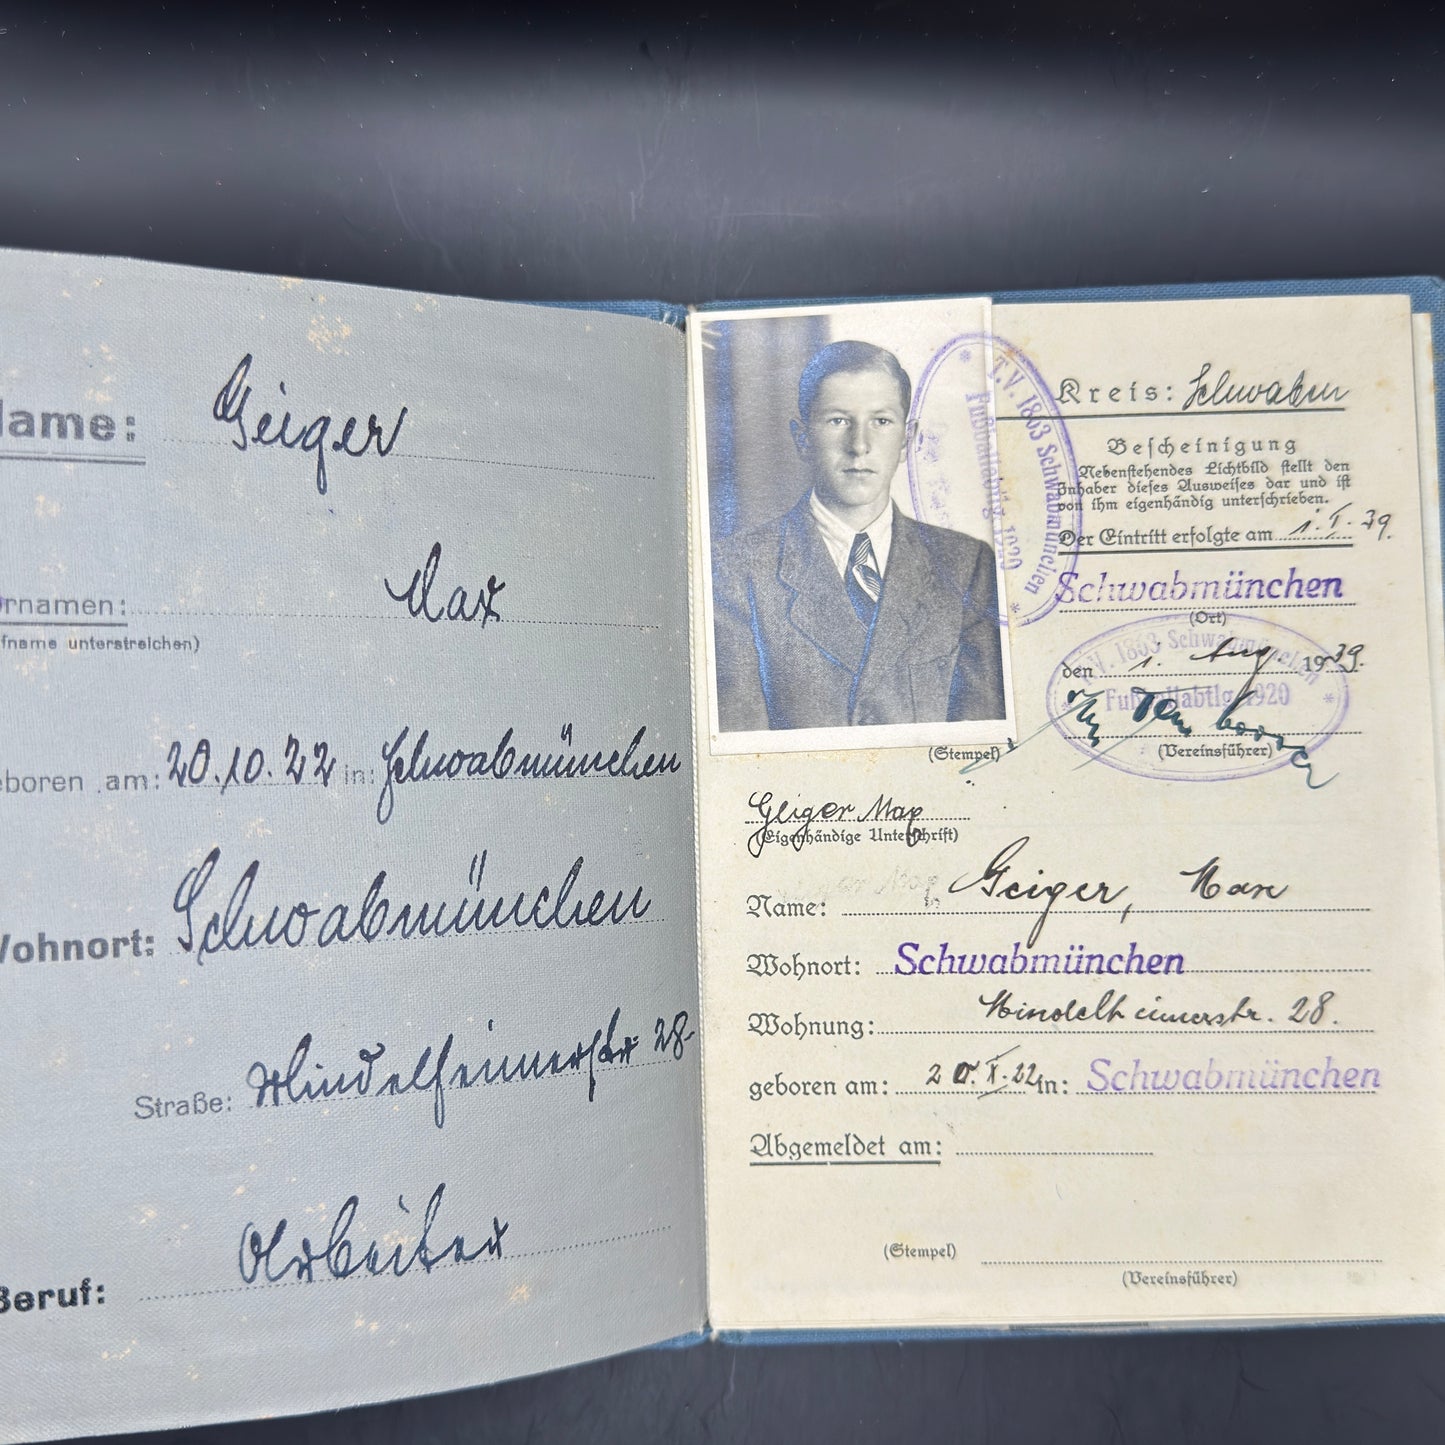 Name: Geiger
Vornamen: Max
(Rufname unterstreichen)
geboren am: 20.10.22 in: Schwabmünchen
Wohnort: Schwabmünchen
Straße: Mindelheimerstr 28
Beruf: Arbeiter
T.V. 1863 Schwabmünchen
Fußballabtlg. 1920
Kreis: Schwaben
Bescheinigung
Nebenstehendes Lichtbild stellt den
Inhaber dieses Ausweises dar und ist
von ihm eigenhändig unterschrieben.
Der Eintritt erfolgte am 1. I. 39.
Schwabmünchen
(Ort)
T.V. 1863 Schwabmünchen
den 1. Aug. 1939.
Fußballabtlg. 1920
(Stempel)
(Vereinsführer)
Geiger Max
(Eigenhändige Unterschrift)
Name: Geiger, Max
Wohnort: Schwabmünchen
Wohnung: Mindelheimerstr. 28.
geboren am: 20. X. 22 in: Schwabmünchen
Abgemeldet am:
(Stempel)
(Vereinsführer)